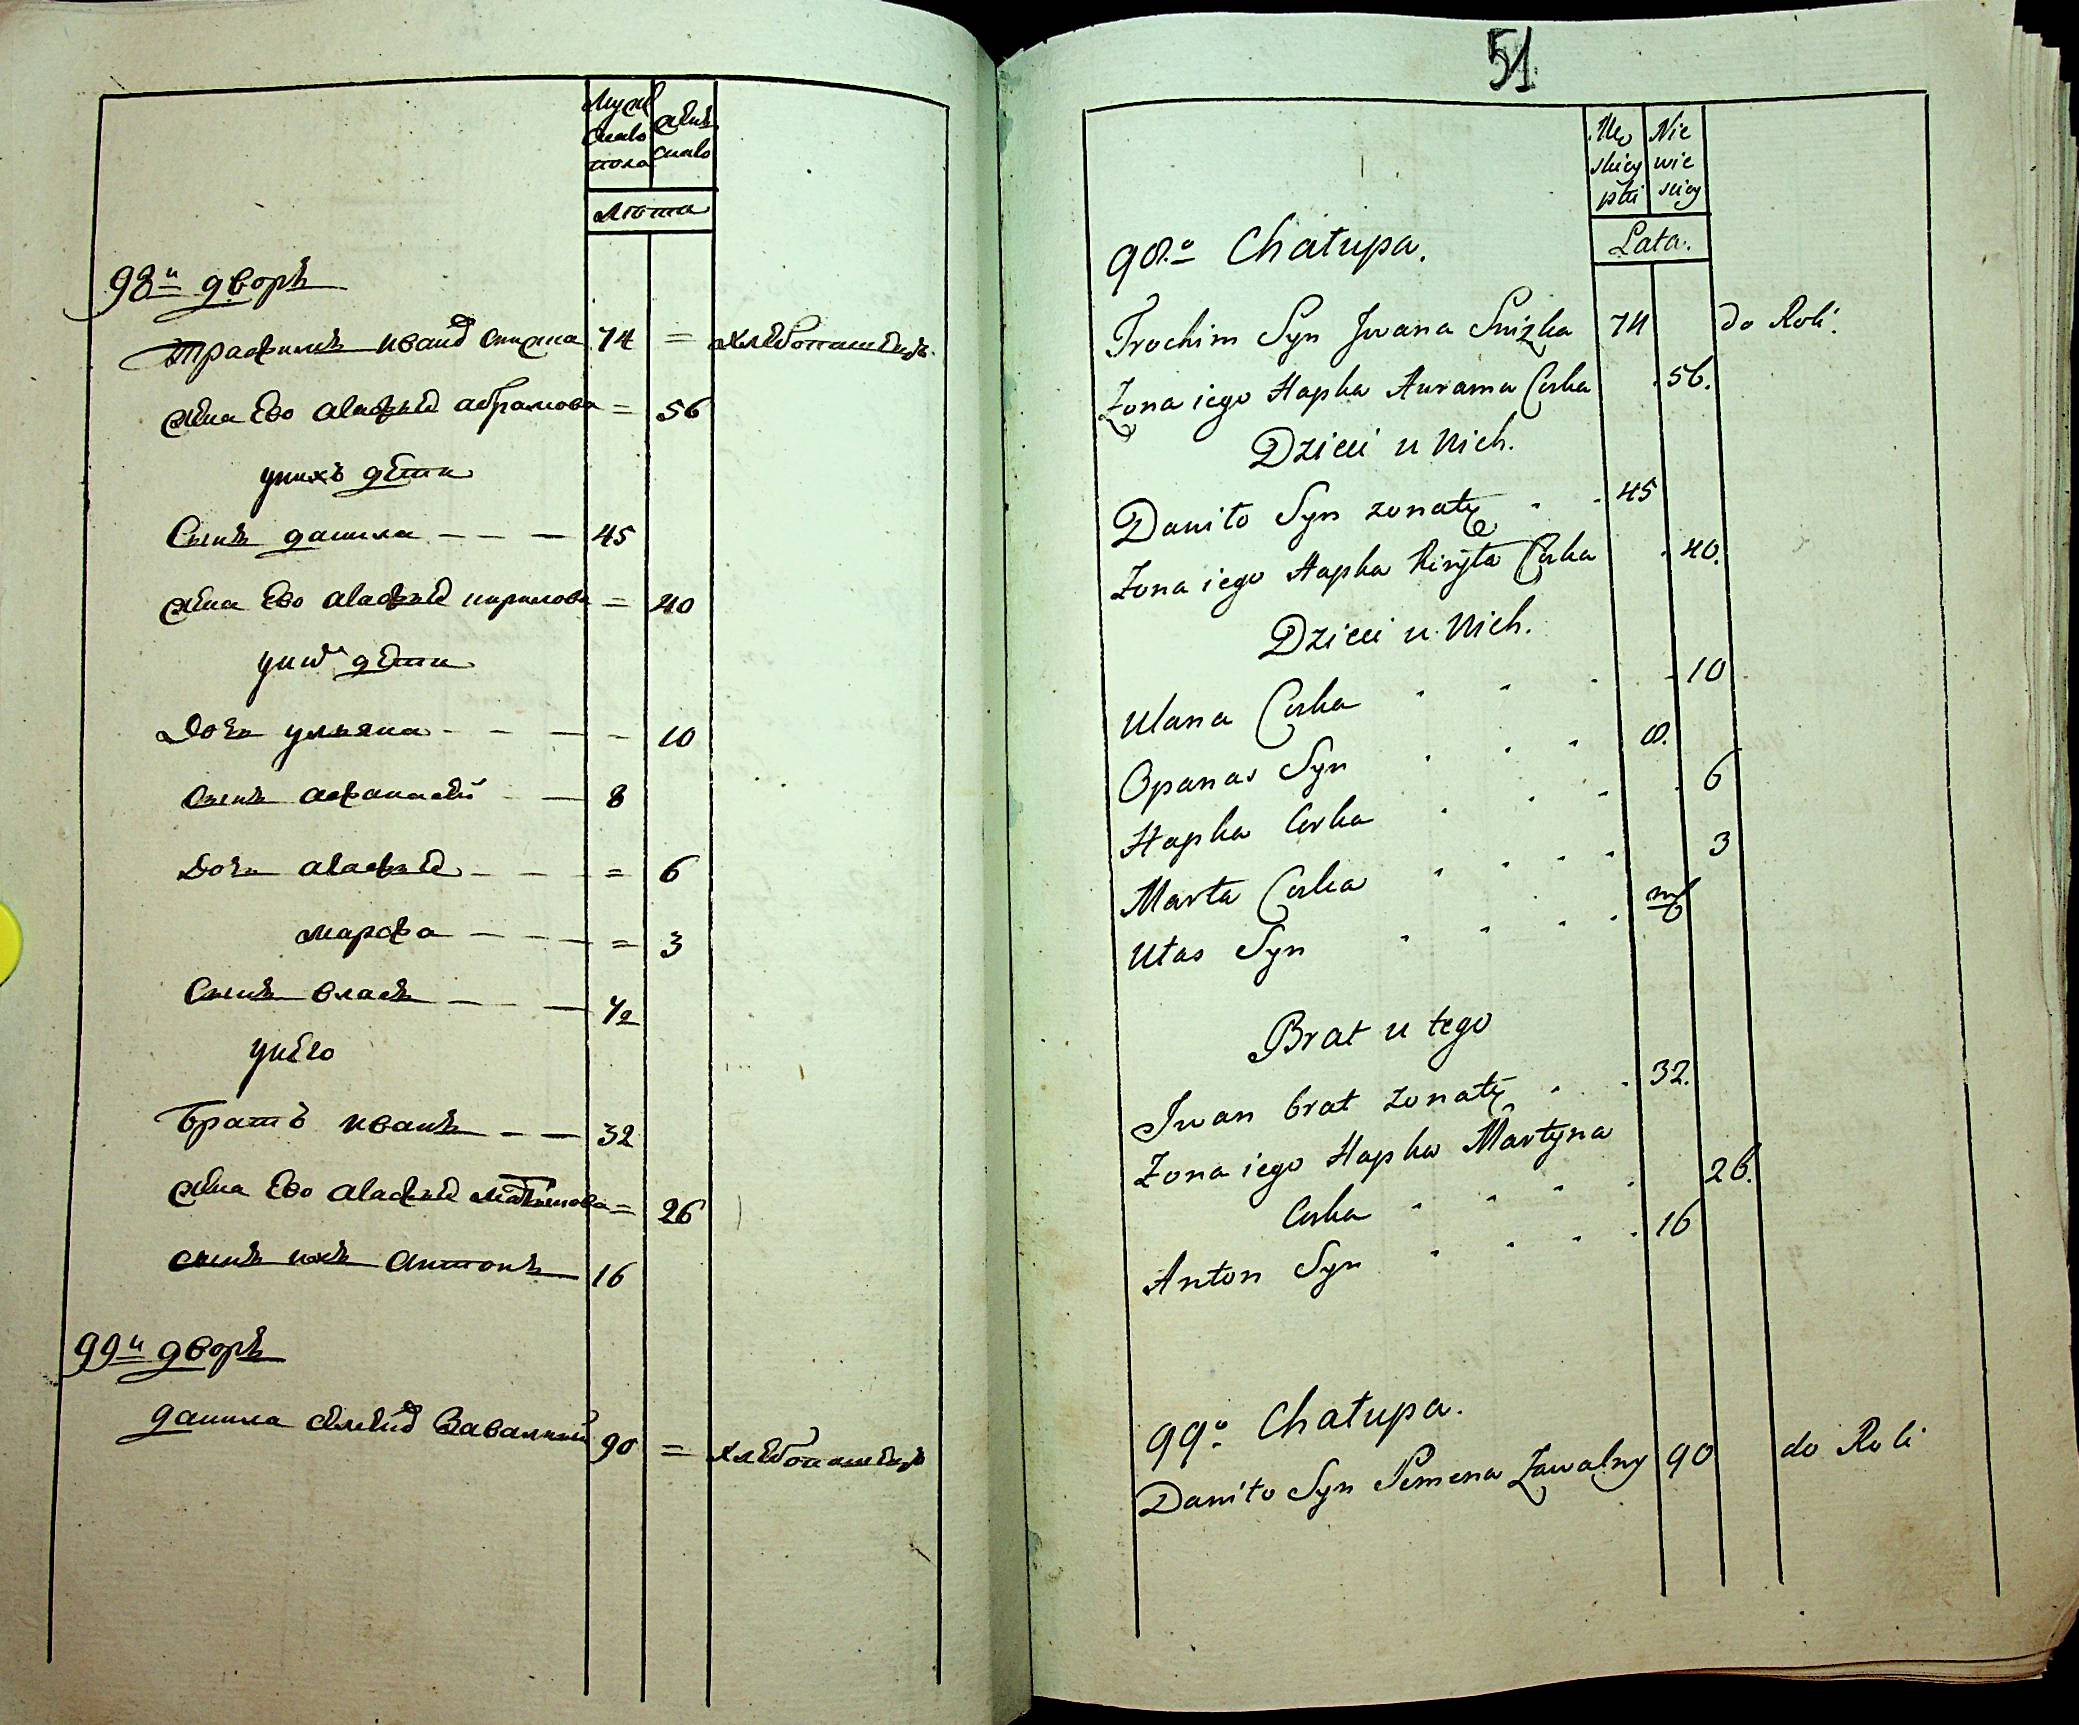 Мужескаго пола
женскаго
Лѣта
98й дворъ
Трафимъ Иванов Снижка 74 = хлѣбопашецъ.
Жена Ево Агафия Абрамова = 56
у них дѣти
Сынъ данила — — — 45
Жена Ево Агафия кирилова = 40
у них дѣти
Дочь ульяна - - — - 10
Сынъ афанасей - — 8
Дочь Агафия - — = 6
марфа — - — = 3
Сынъ власъ — — — 1/2
у него
Братъ иванъ — — 32
Жена Ево Агафия = 26
сынъ ихъ Антонъ 16
99й дворъ
данила Семенов Завалный 90 = хлѣбопашецъ
51
Męskiey płci
Niewieskiey
Lata.
98.o Chałupa.
Trochim Syn Jwana Snizka 74 do Roli.
Zona iego Hapka Awrama Corka . 56.
Dzieci u Nich.
Daniło Syn zonaty . . 45
Zona iego Hapka Kiryła Corka . 40.
Dzieci u Nich.
Ulana Corka . . . . 10
Opanas Syn . . . 8.
Hapka Corka . . . . 6
Marta Corka . . . . 3
Ułas Syn . . . . mf
Brat u tego
Jwan brat zonaty . . 32.
Zona iego Hapka Martyna
Corka . . . . 26.
Anton Syn . . . . 16
99.o Chałupa.
Daniło Syn Semena Zawalny 90 do Roli